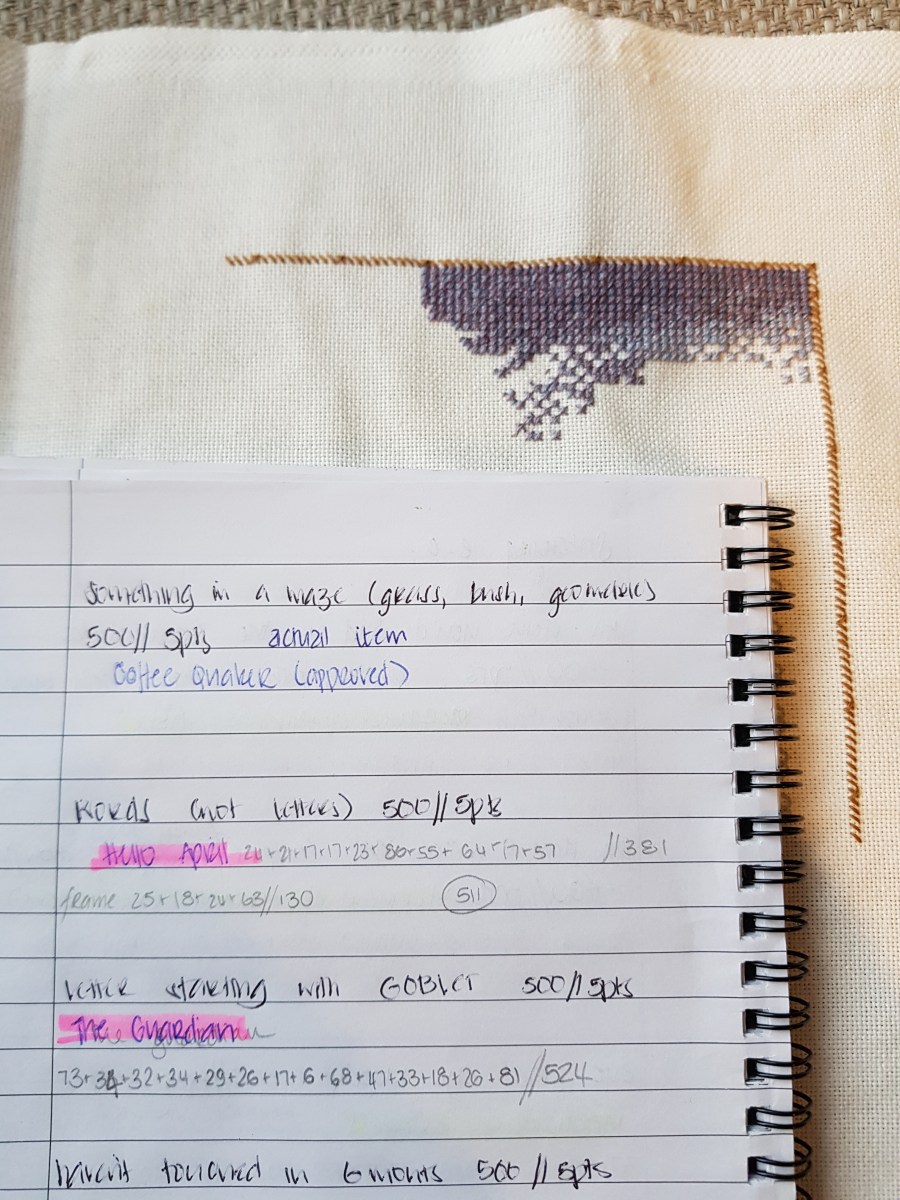 something in a maze (grass, bush, geometric)
500// 5pts actual item
Coffee Quaker (approved)
Words (not letters) 500//5pts
Hello April 24+21+17+17+23+ 86+55+ 64+17+57 //381
frame 25+18+24+63//130
511
letter starting with GOBLET 500//5pts
The Guardian
73+34+32+34+29+26+17+6+68+47+33+18+26+81//524
haven't touched in 6 months 500//5pts